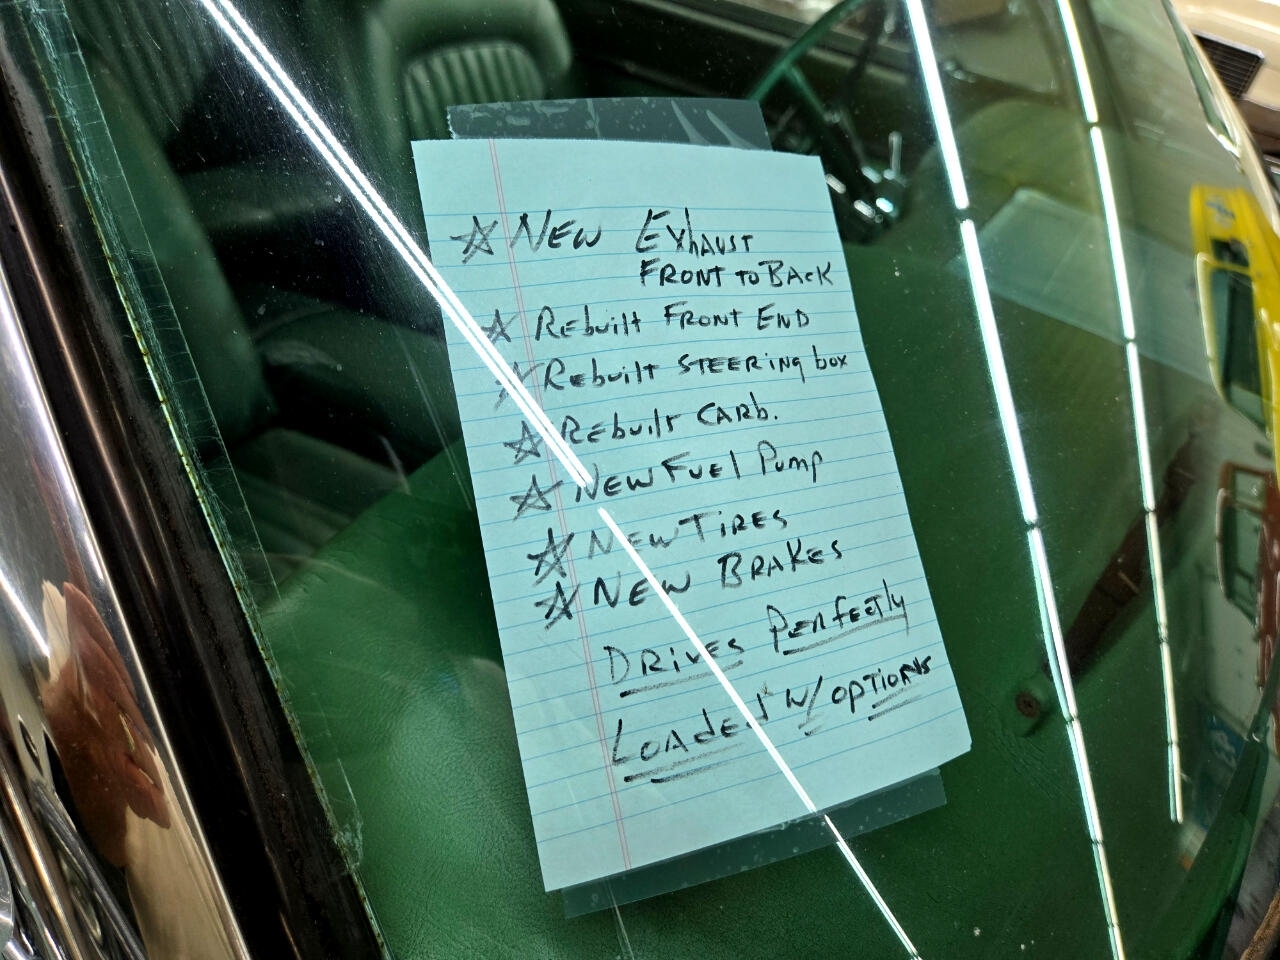 ☆ New Exhaust
Front to Back
☆ Rebuilt Front End
☆ Rebuilt Steering box
☆ Rebuilt Carb.
☆ New Fuel Pump
☆ New Tires
☆ New Brakes
Drives Perfectly
Loaded w/ options